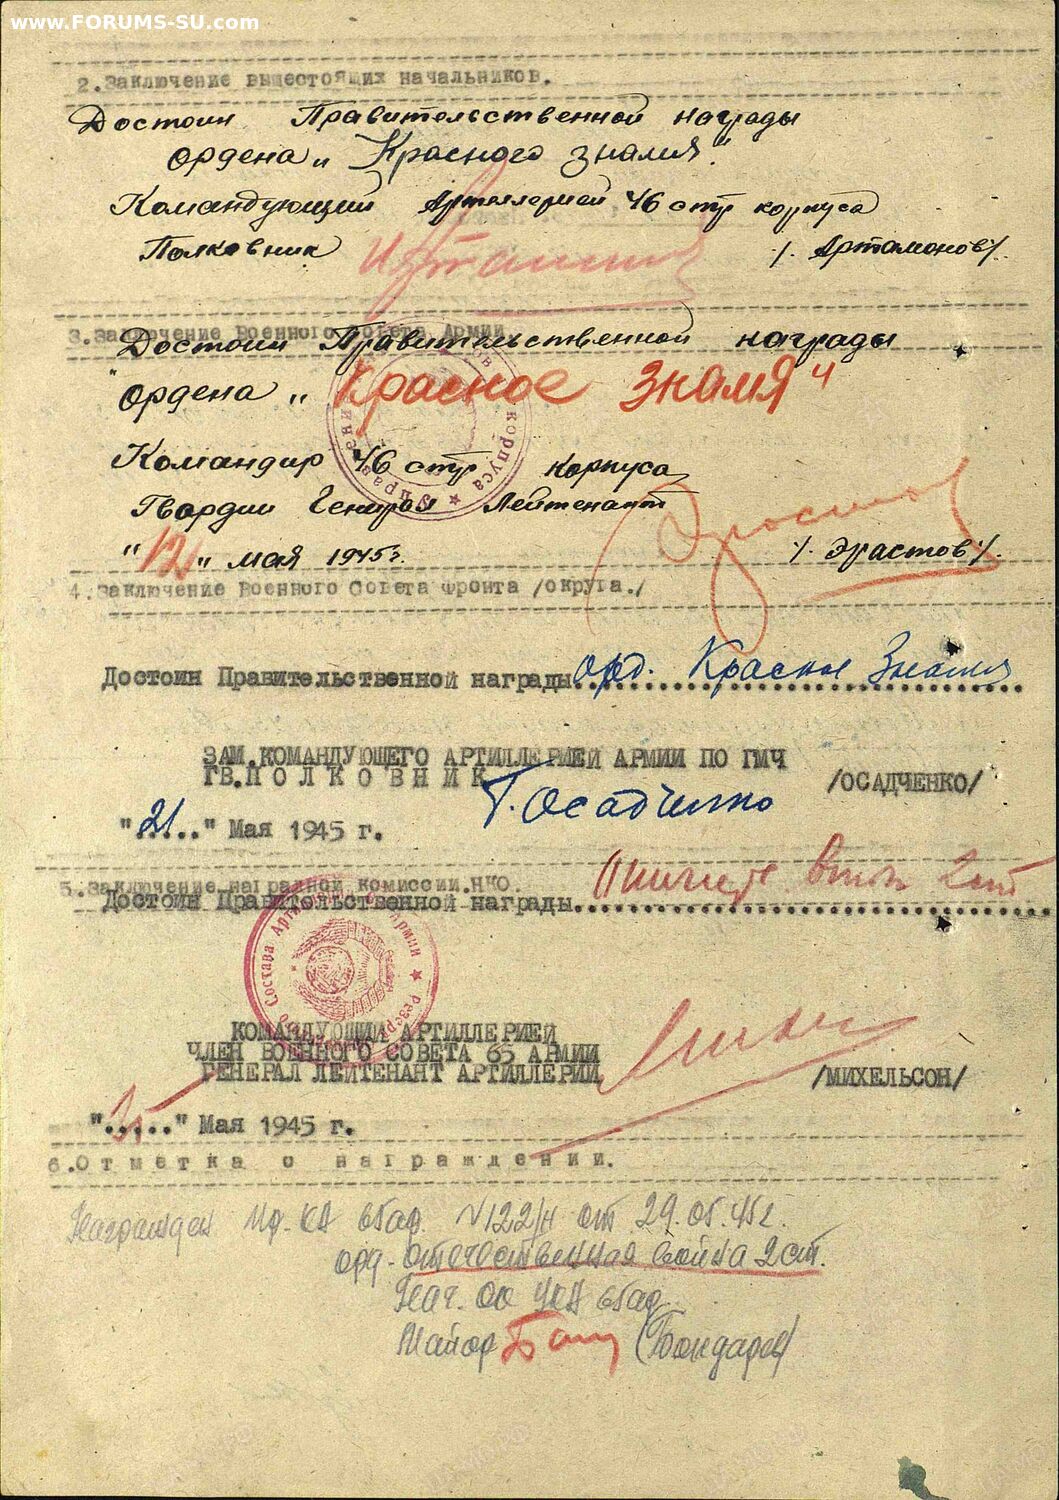 www.FORUMS-SU.com
2.Заключение вышестоящих начальников.
Достоин Правительственной награды
ордена „Красного знамя".
Командующий Артиллерией 46 стр корпуса
Полковник /. Артамонов/.
3.Заключение Военного Совета Армии.
Достоин Правительственной награды
ордена „Красное Знамя"
Командир 46 стр корпуса
Гвардии Генерал Лейтенант
"12" мая 1945г. /. Эрастов/.
4.Заключение Военного Совета Фронта /округа./
Достоин Правительственной награды орд. Красное Знамя
ЗАМ.КОМАНДУЮЩЕГО АРТИЛЛЕРИЕЙ АРМИИ ПО ГМЧ
ГВ.ПОЛКОВНИК Г.Осадченко /ОСАДЧЕНКО/
"21.." Мая 1945 г.
5.Заключение наградной комиссии.НКО.
Достоин Правительственной награды Отечест войн 2 ст
КОМАНДУЮЩИЙ АРТИЛЛЕРИЕЙ
ЧЛЕН ВОЕННОГО СОВЕТА 65 АРМИИ
ГЕНЕРАЛ ЛЕЙТЕНАНТ АРТИЛЛЕРИИ /МИХЕЛЬСОН/
"....." Мая 1945 г.
6.Отметка о награждении.
Награжден Пр. КА 6бад. №122/н от 29.05.45г.
орд. Отечественная война 2 ст.
Нач. 6бад
Майор (Бондарев)